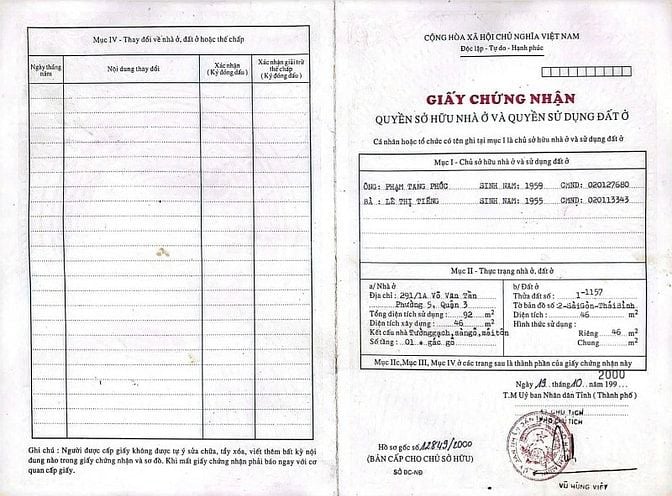 Mục IV - Thay đổi về nhà ở, đất ở hoặc thế chấp
Ngày tháng năm
Nội dung thay đổi
Xác nhận (Ký đóng dấu)
Xác nhận giải trừ thế chấp (Ký đóng dấu)
Ghi chú : Người được cấp giấy không được tự ý sửa chữa, tẩy xóa, viết thêm bất kỳ nội
dung nào trong giấy chứng nhận và sơ đồ. Khi mất giấy chứng nhận phải báo ngay với cơ
quan cấp giấy.
CỘNG HÒA XÃ HỘI CHỦ NGHĨA VIỆT NAM
Độc lập - Tự do - Hạnh phúc
GIẤY CHỨNG NHẬN
QUYỀN SỞ HỮU NHÀ Ở VÀ QUYỀN SỬ DỤNG ĐẤT Ở
Cá nhân hoặc tổ chức có tên ghi tại mục I là chủ sở hữu nhà ở và sử dụng đất ở
Mục I - Chủ sở hữu nhà ở và sử dụng đất ở
ÔNG: PHẠM TANG PHÚC SINH NAM: 1959 CMND: 020127680
BÀ : LÊ THỊ TIẾNG SINH NAM: 1955 CMND: 020113343
Mục II - Thực trạng nhà ở, đất ở
a/ Nhà ở
Địa chỉ : 291/1A Võ Văn Tần
Phường 5, Quận 3
Tổng diện tích sử dụng : 92 m²
Diện tích xây dựng : 46 m²
Kết cấu nhà Tườnggạch,sàngỗ,máitôn
Số tầng : 01 + gác gỗ
b/ Đất ở
Thửa đất số : 1-1157
Tờ bản đồ số : 2-SàiGòn-TháiBình
Diện tích : 46 m²
Hình thức sử dụng :
Riêng 46 m²
Chung m²
Mục IIc,Mục III, Mục IV ở các trang sau là thành phần của giấy chứng nhận này
2000
Ngày 19 tháng 10 năm 199...
T.M Uỷ ban Nhân dân Tỉnh ( Thành phố )
KT CHỦ TỊCH
PHÓ CHỦ TỊCH
Hồ sơ gốc số 12849/2000
(BẢN CẤP CHO CHỦ SỞ HỮU)
SỞ ĐC-NĐ
VŨ HÙNG VIỆT